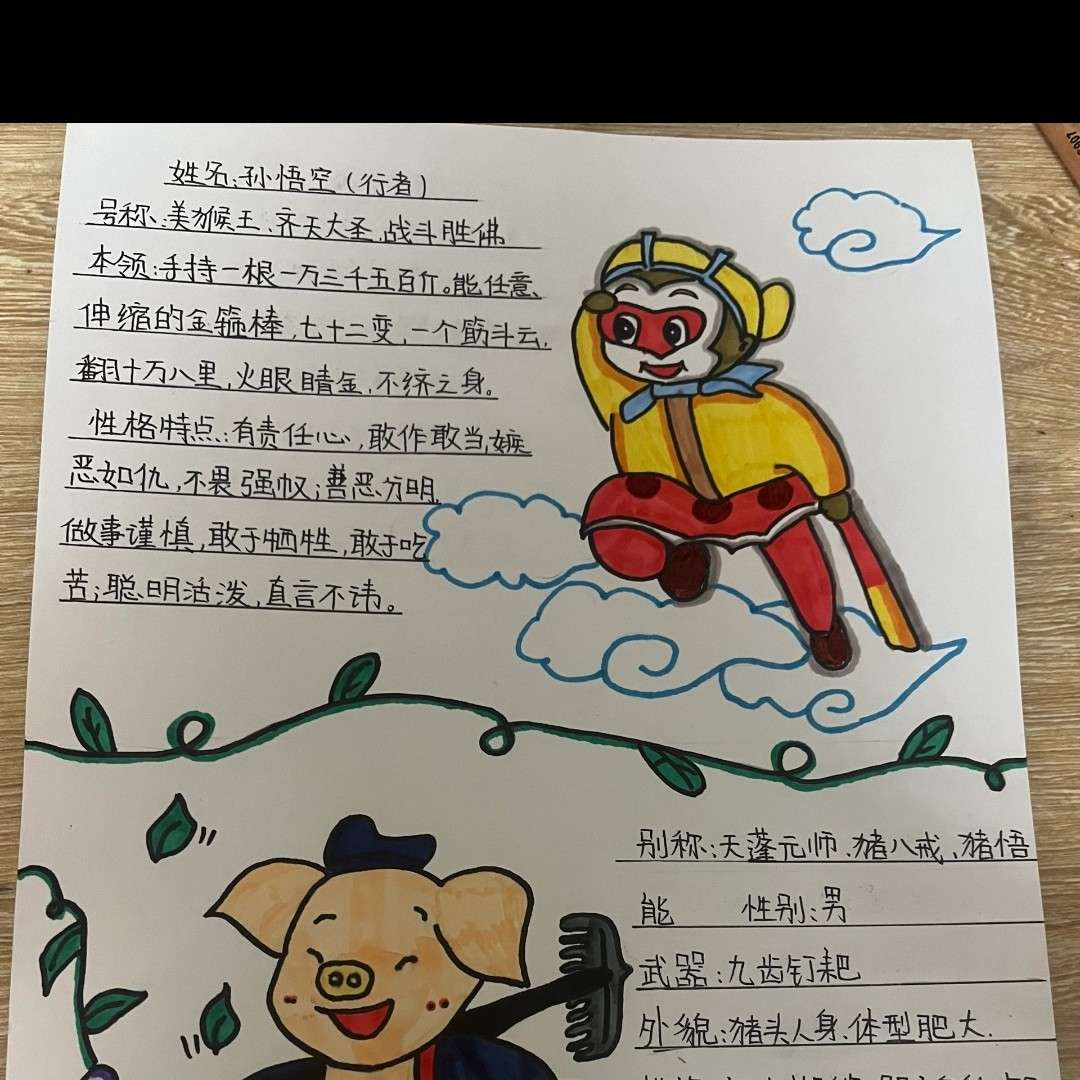 姓名:孙悟空(行者)
号称:美猴王、齐天大圣,战斗胜佛
本领:手持一根一万三千五百斤。能任意、
伸缩的金箍棒,七十二变,一个筋斗云,
翻十万八里,火眼睛金,不坏之身。
性格特点:有责任心,敢作敢当,嫉
恶如仇,不畏强权;善恶分明,
做事谨慎,敢于牺牲,敢于吃
苦;聪明活泼,直言不讳。
别称:天蓬元师、猪八戒、猪悟
能 性别:男
武器:九齿钉耙
外貌:猪头人身、体型肥大.